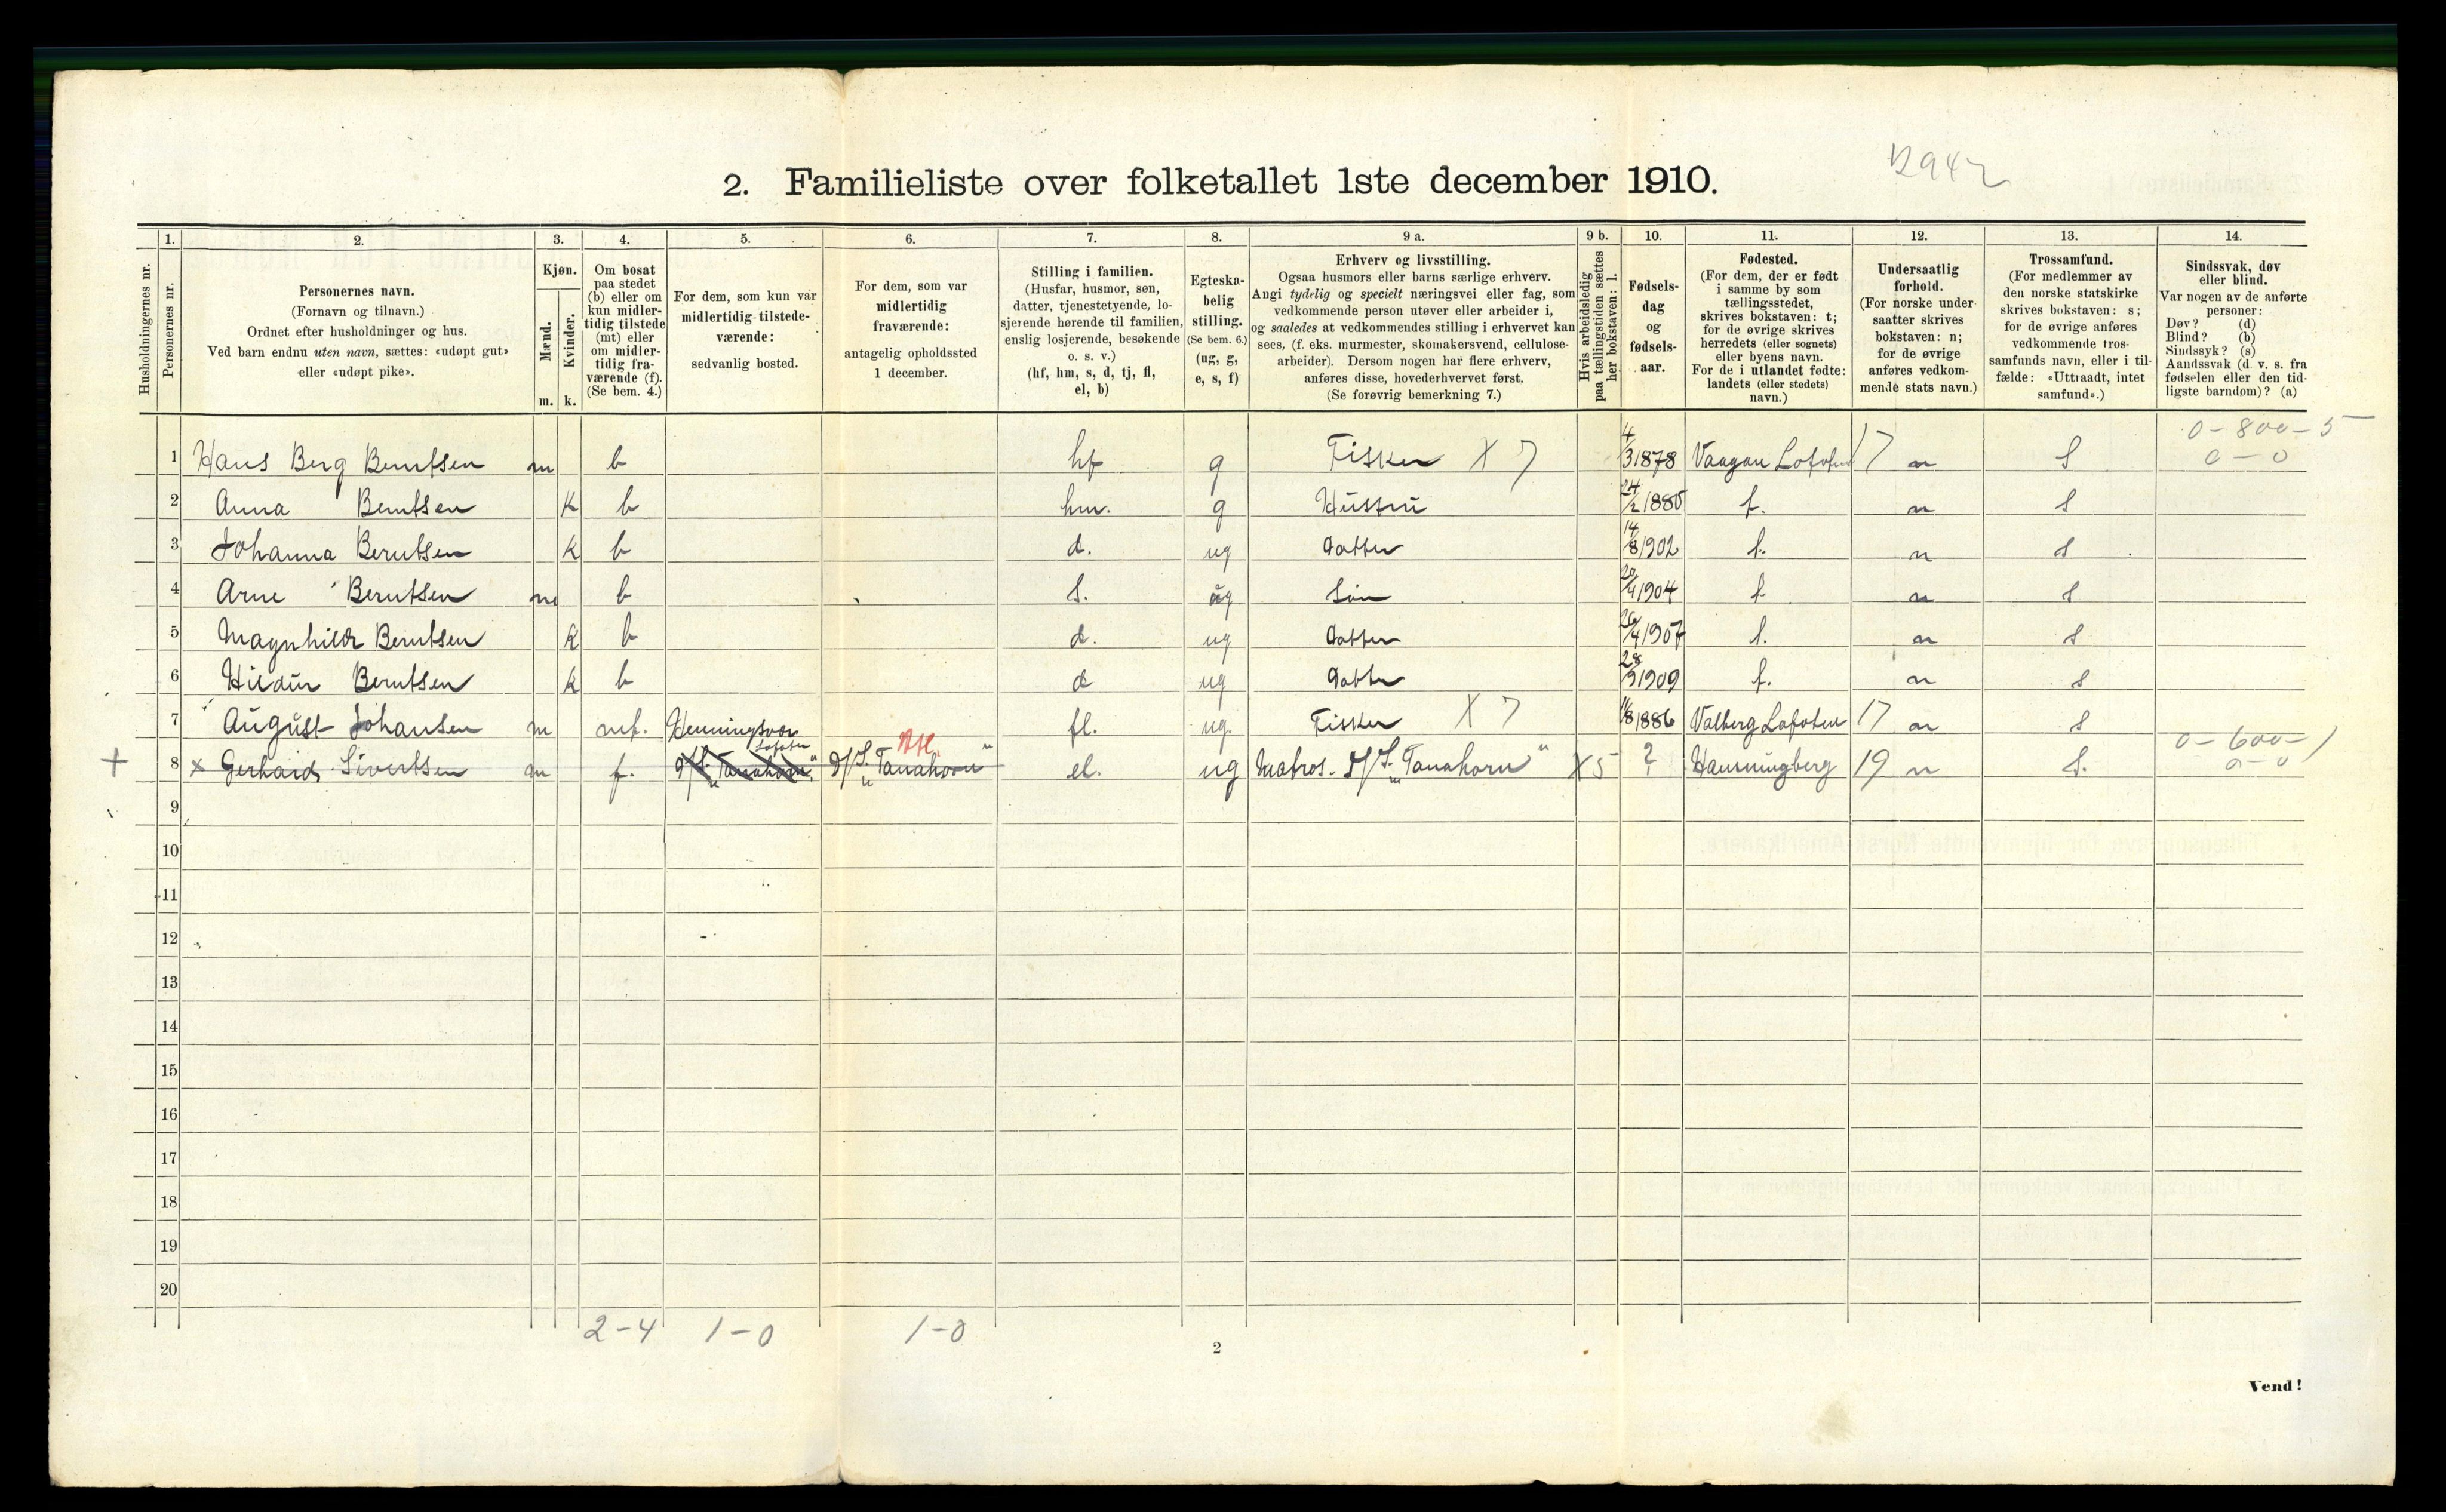 2. Familieliste over folketallet 1ste december 1910.
Husholdningernes nr.
1. Personernes nr.
2. Personernes navn.
(Fornavn og tilnavn.)
Ordnet efter husholdninger og hus.
Ved barn endnu uten navn, sættes: «udøpt gut»
eller «udøpt pike».
3. Kjøn.
Mænd. m.
Kvinder. k.
4. Om bosat
paa stedet
(b) eller om
kun midler-
tidig tilstede
(mt) eller
om midler-
tidig fra-
værende (f).
(Se bem. 4.)
5. For dem, som kun var
midlertidig tilstede-
værende:
sedvanlig bosted.
6. For dem, som var
midlertidig
fraværende:
antagelig opholdssted
1 december.
7. Stilling i familien.
(Husfar, husmor, søn,
datter, tjenestetyende, lo-
sjerende hørende til familien,
enslig losjerende, besøkende
o. s. v.)
(hf, hm, s, d, tj, fl,
el, b)
8. Egteska-
belig
stilling.
(Se bem. 6.)
(ug, g,
e, s, f)
9 a. Erhverv og livsstilling.
Ogsaa husmors eller barns særlige erhverv.
Angi tydelig og specielt næringsvei eller fag, som
vedkommende person utøver eller arbeider i,
og saaledes at vedkommendes stilling i erhvervet kan
sees, (f. eks. murmester, skomakersvend, cellulose-
arbeider). Dersom nogen har flere erhverv,
anføres disse, hovederhvervet først.
(Se forøvrig bemerkning 7.)
9 b. Hvis arbeidsledig
paa tællingstiden sættes
her bokstaven: l.
10. Fødsels-
dag
og
fødsels-
aar.
11. Fødested.
(For dem, der er født
i samme by som
tællingsstedet,
skrives bokstaven: t;
for de øvrige skrives
herredets (eller sognets)
eller byens navn.
For de i utlandet fødte:
landets (eller stedets)
navn.)
12. Undersaatlig
forhold.
(For norske under-
saatter skrives
bokstaven: n;
for de øvrige
anføres vedkom-
mende stats navn.)
13. Trossamfund.
(For medlemmer av
den norske statskirke
skrives bokstaven: s;
for de øvrige anføres
vedkommende tros-
samfunds navn, eller i til-
fælde: «Uttraadt, intet
samfund».)
14. Sindssvak, døv
eller blind.
Var nogen av de anførte
personer:
Døv? (d)
Blind? (b)
Sindssyk? (s)
Aandssvak (d. v. s. fra
fødselen eller den tid-
ligste barndom)? (a)
0-800-5
1 Hans Berg Berntsen m b hf g Fisker X 7 4/3 1878 Vaagan Lofoten 17 n S 0-0
2 Anna Berntsen K b hm. g Hustru 24/2 1885 t. n S
3 Johanna Berntsen K b d. ug datter 14/8 1902 t. n S
4 Arne Berntsen m b S. ug Søn 20/4 1904 t n S
5 Magnhild Berntsen K b d. ug datter 26/4 1907 t. n S
6 Hildur Berntsen K b d ug datter 28/9 1909 t. n S
7 August Johansen m mt. Henningsvær Lofoten fl. ug. Fisker X 7 11/8 1886 Valberg Lofoten 17 n S
0-600-1
+ 8 x Gerhard Sivertsen m f. D/S. "Tanahorn" D/S. "Tanahorn" el. ug Matros. D/S. "Tanahorn" X5 ? Hamningberg 19 n S. 0-0
9
10
11
12
13
14
15
16
17
18
19
20
2-4 1-0 1-0
2
Vend!